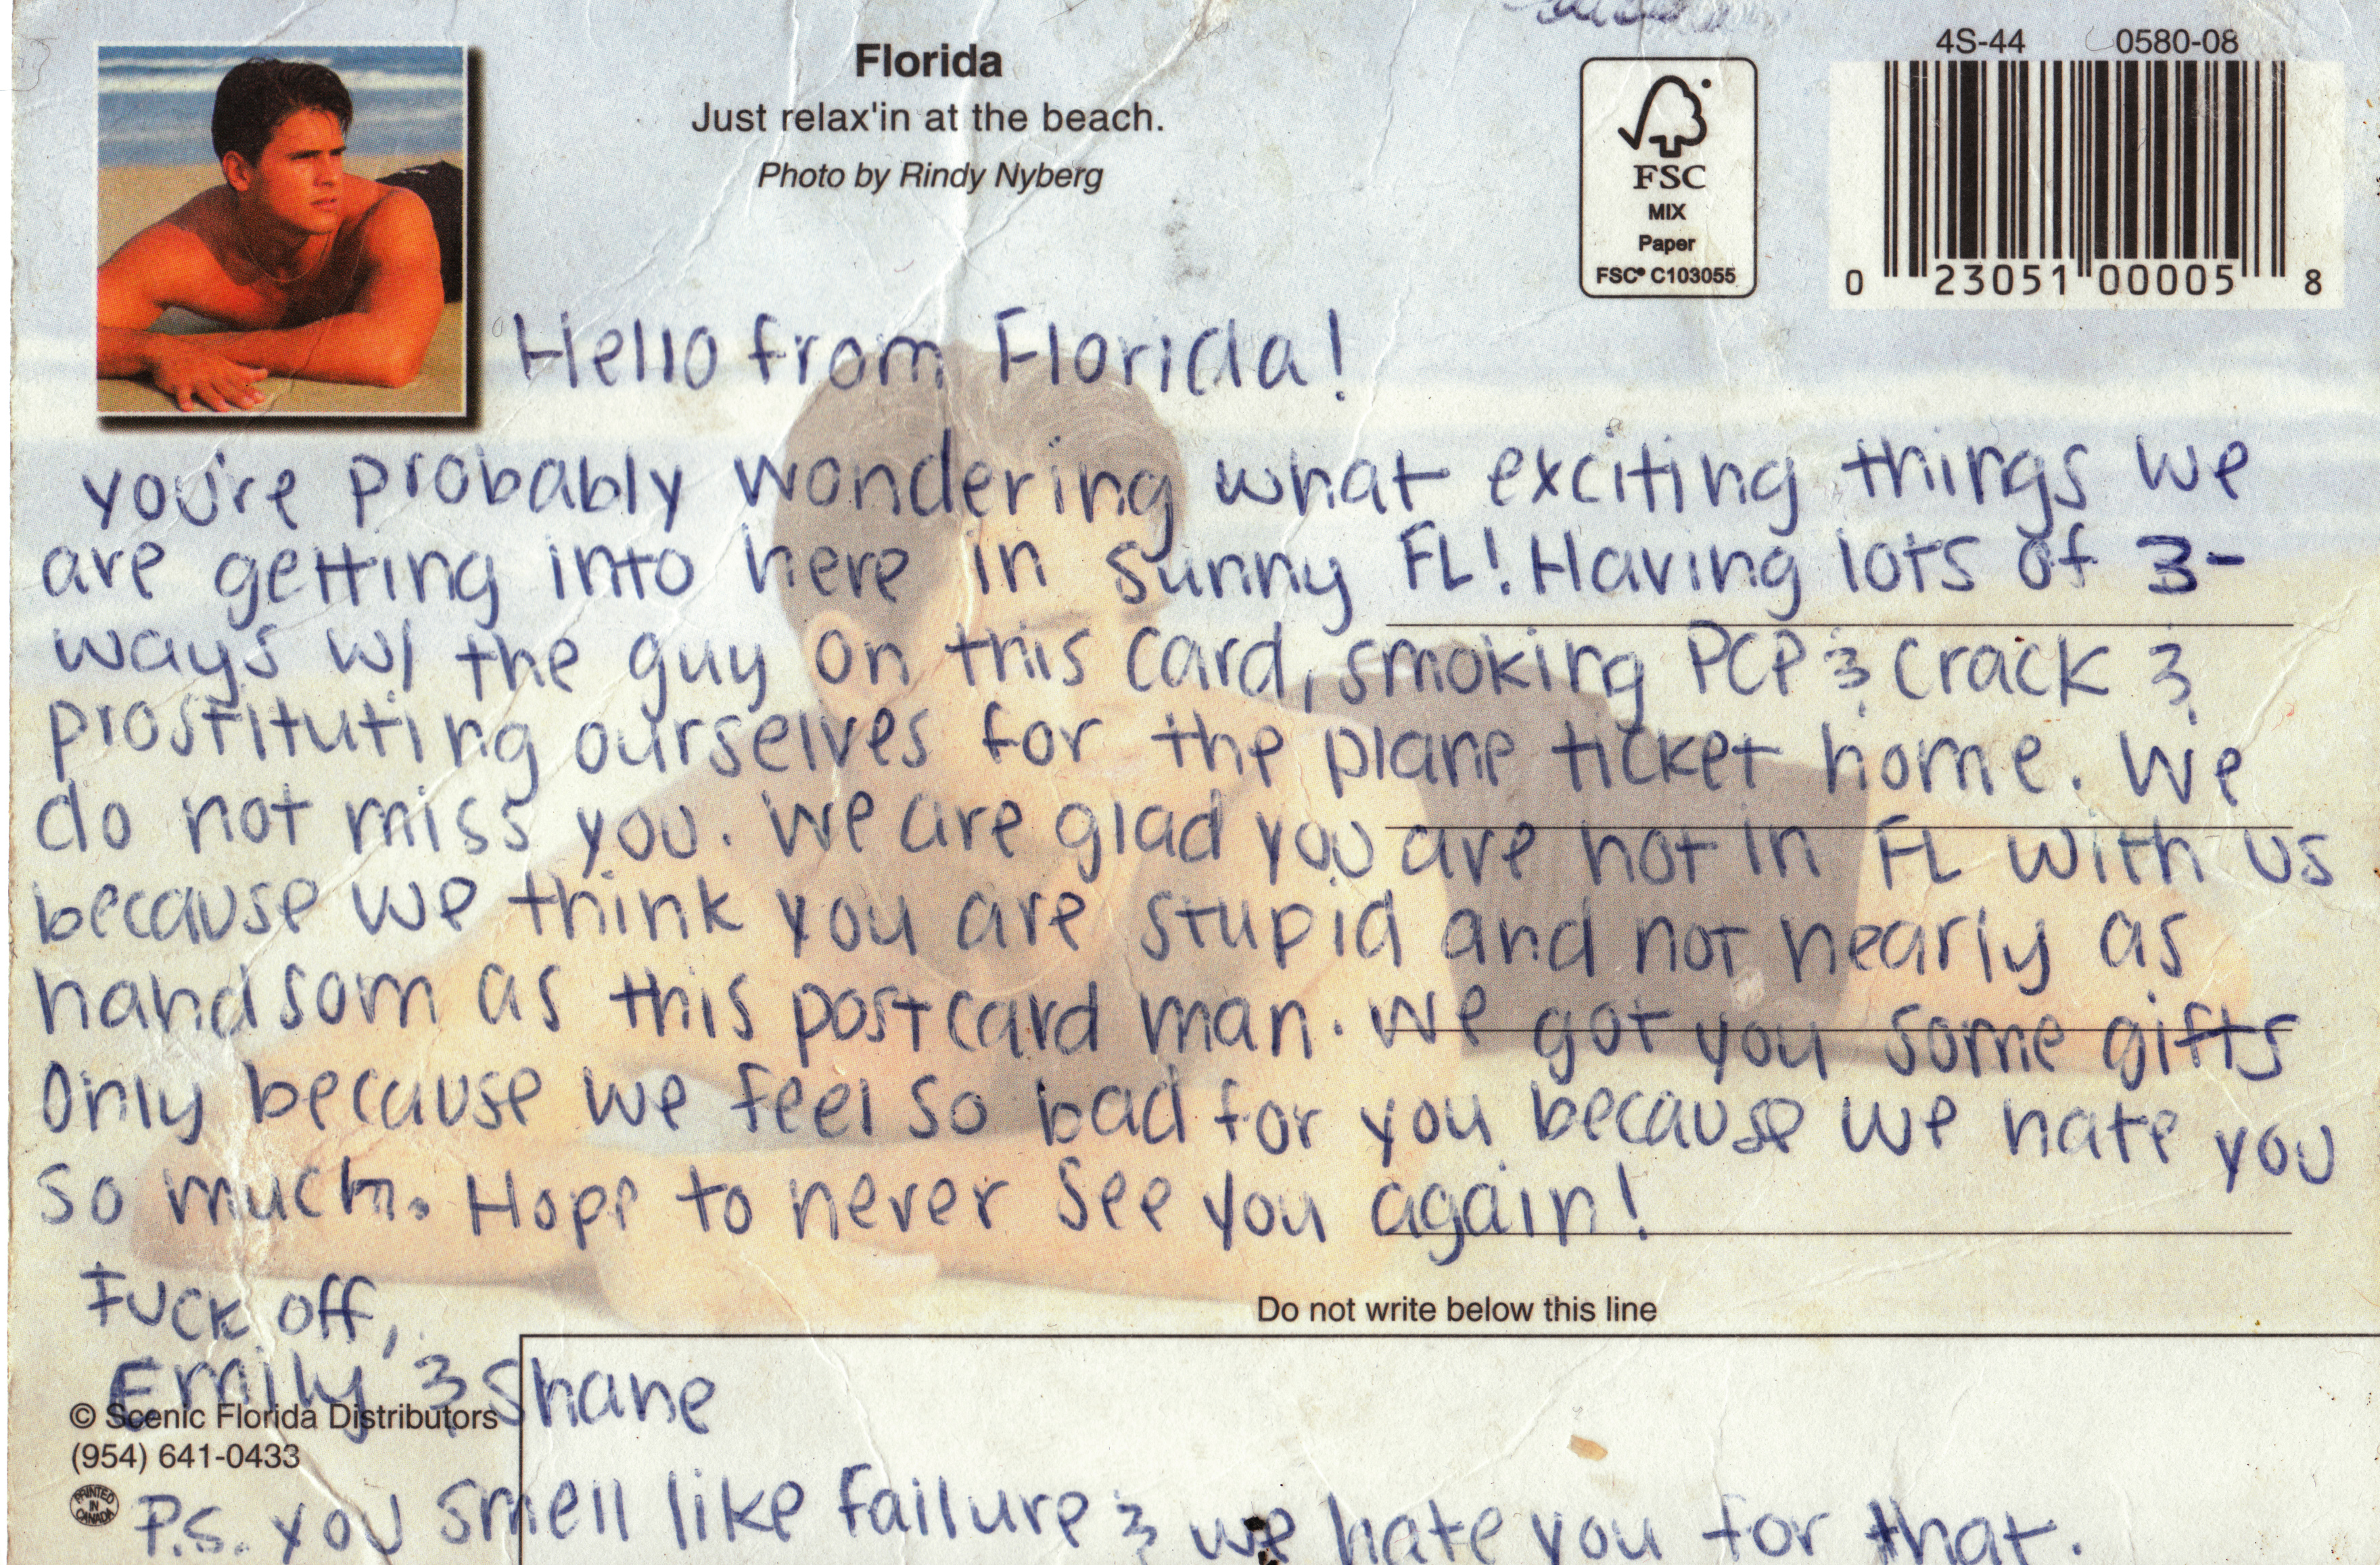 Florida
Just relax'in at the beach.
Photo by Rindy Nyberg
FSC
MIX
Paper
FSC® C103055
4S-44 0580-08
0 23051 00005 8
Hello from Florida!
you're probably wondering what exciting things we
are getting into here in sunny FL! Having lots of 3-
ways w/ the guy on this card, smoking PCP & crack &
prostituting ourselves for the plane ticket home. We
do not miss you. We are glad you are not in FL with us
because we think you are stupid and not nearly as
handsom as this postcard man. We got you some gifts
only because we feel so bad for you because we hate you
so much. Hope to never see you again!
Do not write below this line
Fuck off,
Emily & Shane
© Scenic Florida Distributors
(954) 641-0433
PRINTED IN CANADA
P.S. you smell like failure & we hate you for that.